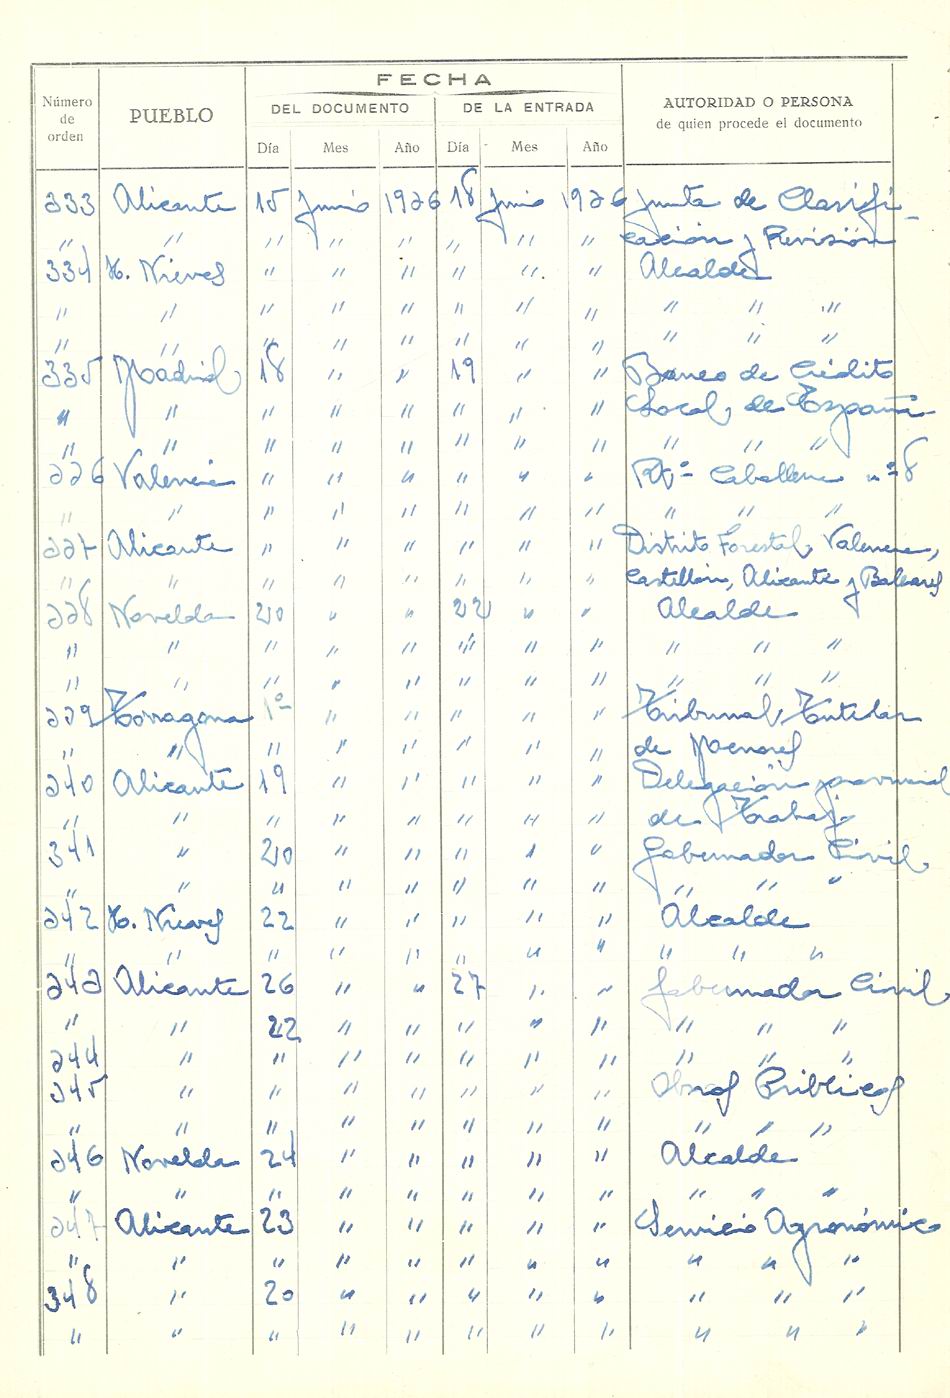 FECHA
Número de orden PUEBLO DEL DOCUMENTO DE LA ENTRADA AUTORIDAD O PERSONA de quien procede el documento
Día Mes Año Día Mes Año
333 Alicante 15 Junio 1936 18 Junio 1936 Junta de Clasifi-
" " " " " " " " cación y Revisión
334 H. Nieves " " " " " " Alcalde
" " " " " " " " " " "
" " " " " " " " " " "
335 Madrid 18 " " 19 " " Banco de Crédito
" " " " " " " " Local de España
" " " " " " " " " " "
336 Valencia " " " " " " Rgto Caballería nº 8
" " " " " " " " " " "
337 Alicante " " " " " " Distrito Forestal, Valencia,
" " " " " " " " Castellón, Alicante y Baleares
338 Novelda 20 " " 22 " " Alcalde
" " " " " " " " " " "
" " " " " " " " " " "
339 Tarragona 1º " " " " " Tribunal Tutelar
" " " " " " " " de Menores
340 Alicante 19 " " " " " Delegación provincial
" " " " " " " " de Trabajo
341 " 20 " " " " " Gobernador Civil
" " " " " " " " " " "
342 H. Nieves 22 " " " " " Alcalde
" " " " " " " " " " "
343 Alicante 26 " " 27 " " Gobernador Civil
" " 22 " " " " " " " "
344 " " " " " " " " " "
345 " " " " " " " Obras Públicas
" " " " " " " " " " "
346 Novelda 24 " " " " " Alcalde
" " " " " " " " " " "
347 Alicante 23 " " " " " Servicio Agronómico
" " " " " " " " " " "
348 " 20 " " " " " " " "
" " " " " " " " " " "